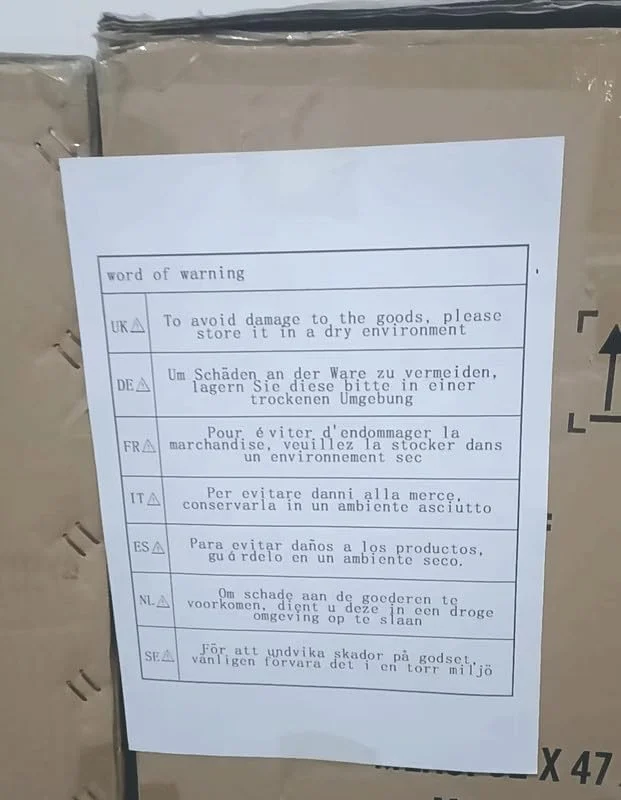 word of warning
UK To avoid damage to the goods, please
store it in a dry environment
DE Um Schäden an der Ware zu vermeiden,
lagern Sie diese bitte in einer
trockenen Umgebung
FR Pour éviter d'endommager la
marchandise, veuillez la stocker dans
un environnement sec
IT Per evitare danni alla merce,
conservarla in un ambiente asciutto
ES Para evitar daños a los productos,
guárdelo en un ambiente seco.
NL Om schade aan de goederen te
voorkomen, dient u deze in een droge
omgeving op te slaan
SE För att undvika skador på godset,
vänligen förvara det i en torr miljö
X 47